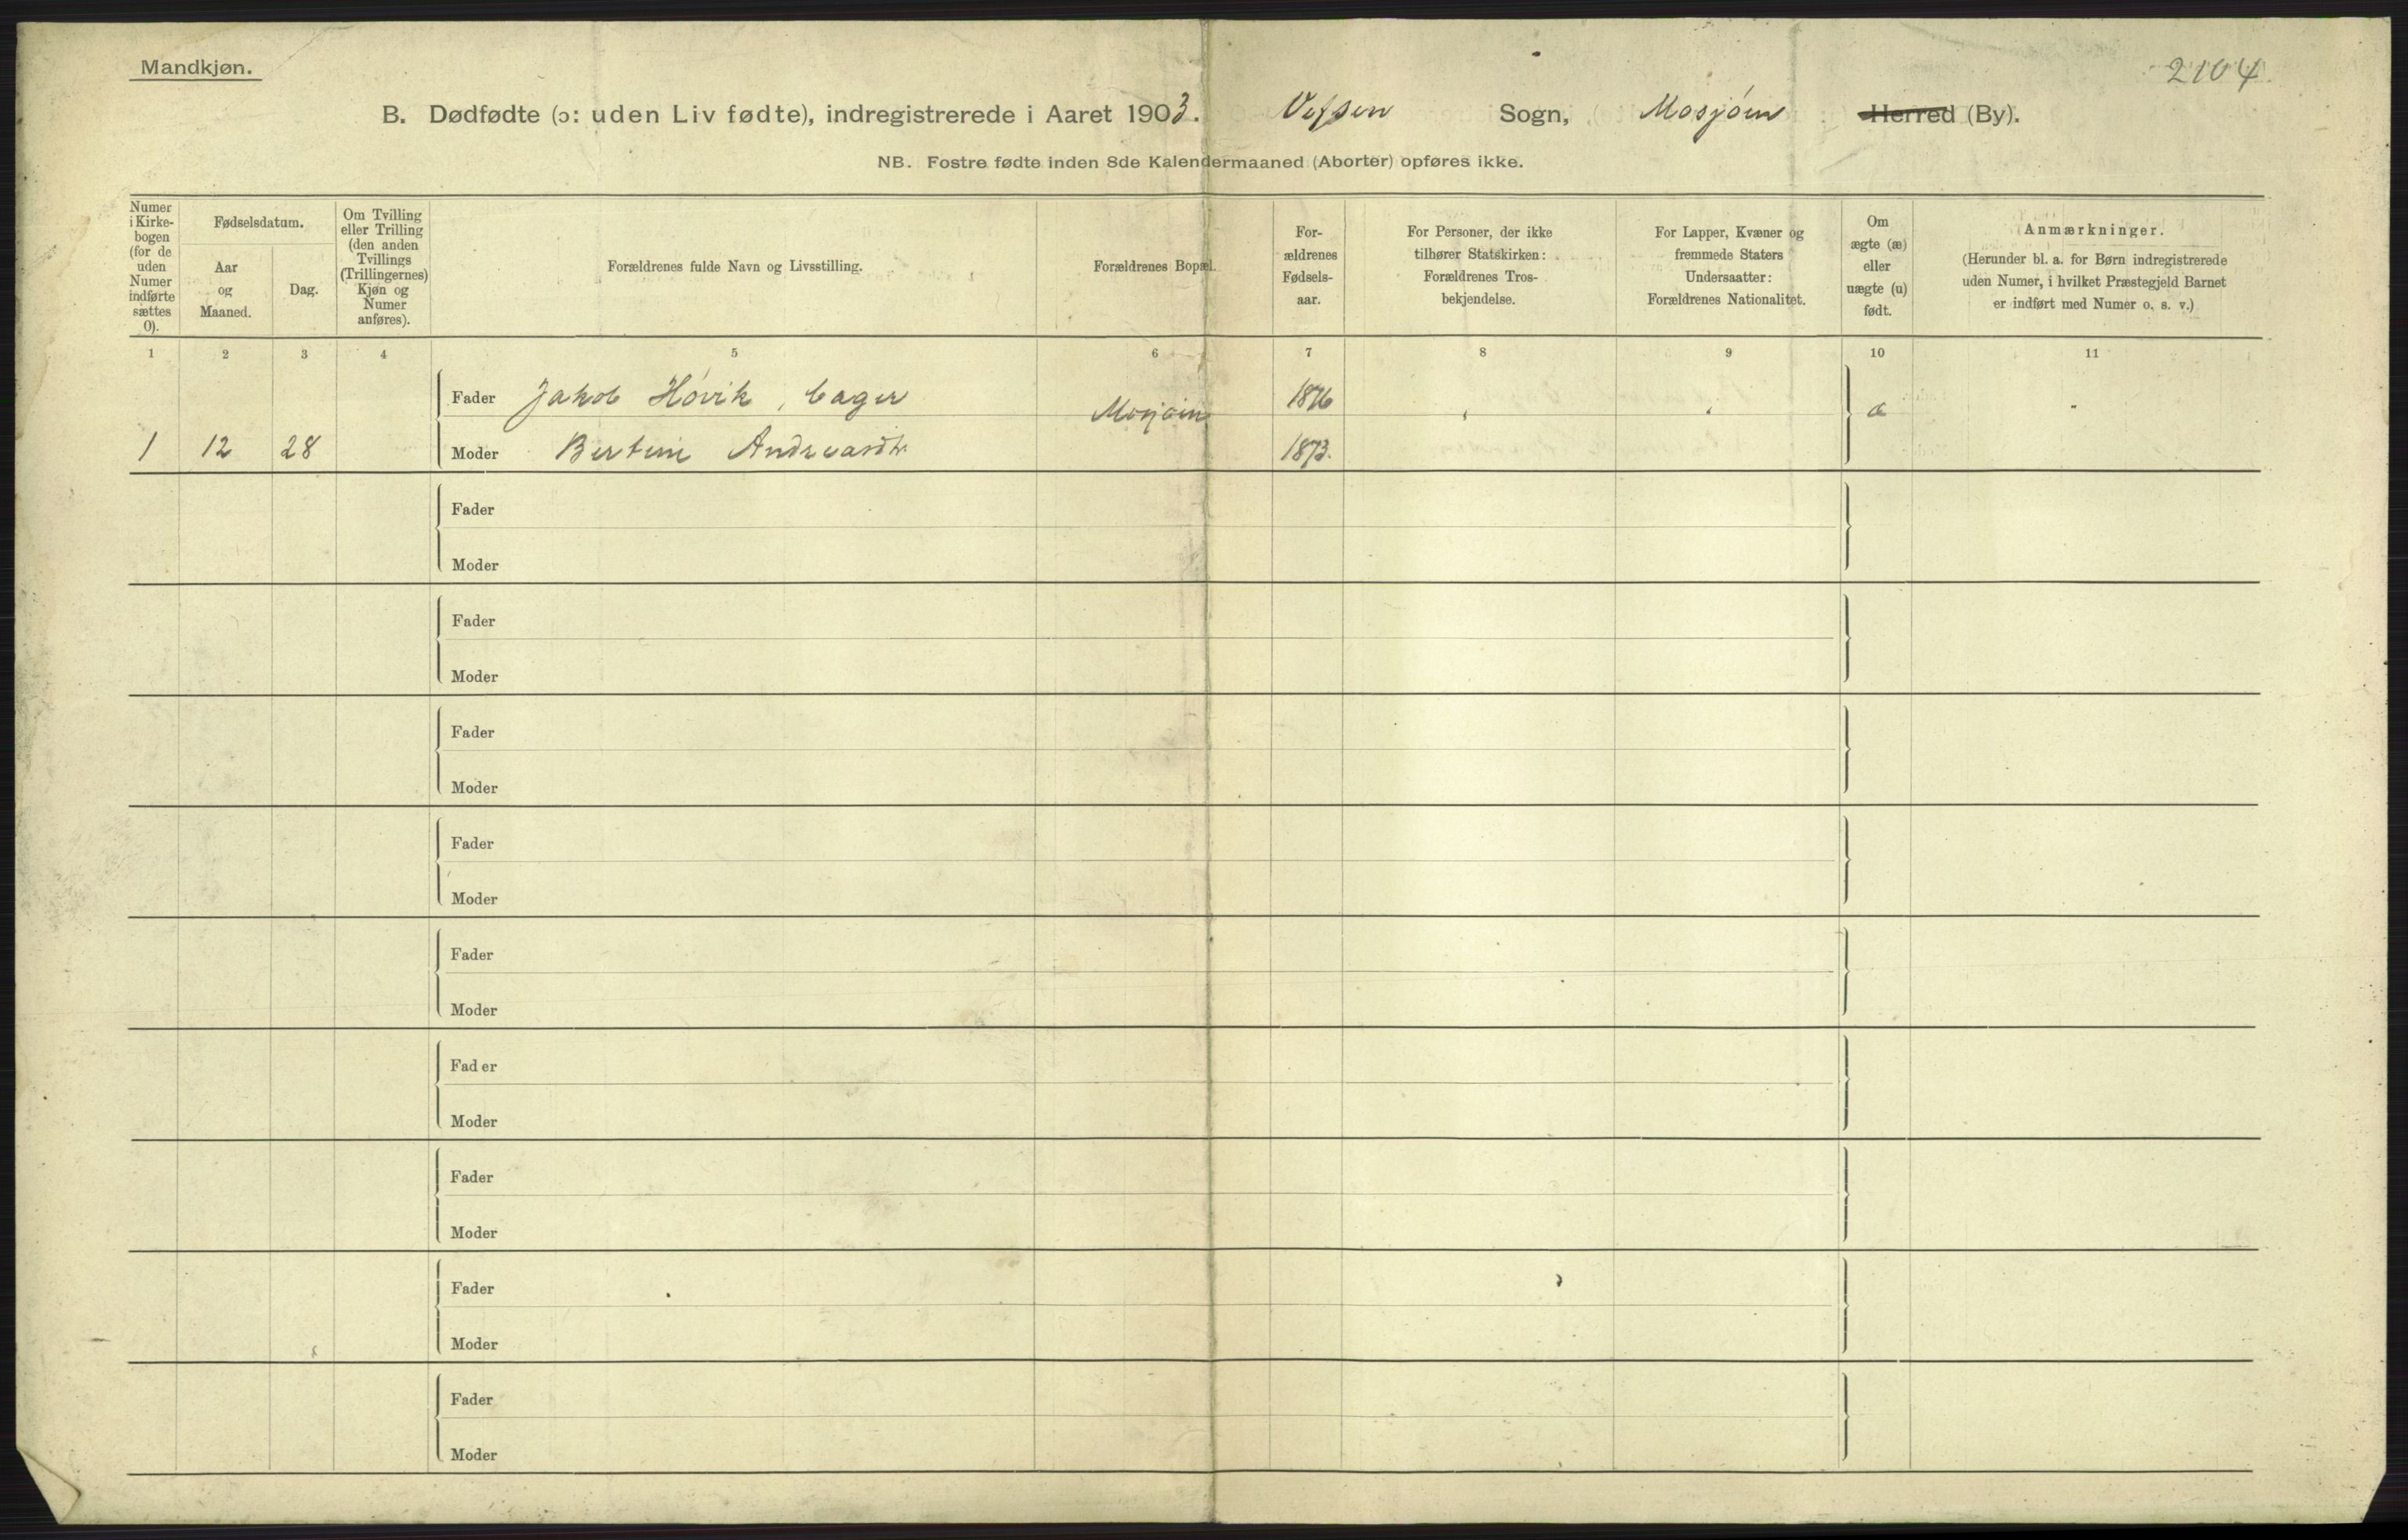 Mandkjøn.
2104.
B. Dødfødte (ɔ: uden Liv fødte), indregistrerede i Aaret 1903. Vefsen Sogn, Mosjøen Herred (By).
NB. Fostre fødte inden 8de Kalendermaaned (Aborter) opføres ikke.
Numer i Kirke-bogen (for de uden Numer indførte sættes 0).
Fødselsdatum.
Aar og Maaned.
Dag.
Om Tvilling eller Trilling (den anden Tvillings (Trillingernes) Kjøn og Numer anføres).
Forældrenes fulde Navn og Livsstilling.
Forældrenes Bopæl.
For-ældrenes Fødsels-aar.
For Personer, der ikke tilhører Statskirken: Forældrenes Tros-bekjendelse.
For Lapper, Kvæner og fremmede Staters Undersaatter: Forældrenes Nationalitet.
Om ægte (æ) eller uægte (u) født.
Anmærkninger.
(Herunder bl. a. for Børn indregistrerede uden Numer, i hvilket Præstegjeld Barnet er indført med Numer o. s. v.)
1 2 3 4 5 6 7 8 9 10 11
Fader Jakob Høvik, bager Mosjøen 1876 " " æ "
1 12 28 Moder Bertine Andreasdtr. 1873.
Fader
Moder
Fader
Moder
Fader
Moder
Fader
Moder
Fader
Moder
Fader
Moder
Fader
Moder
Fader
Moder
Fader
Moder